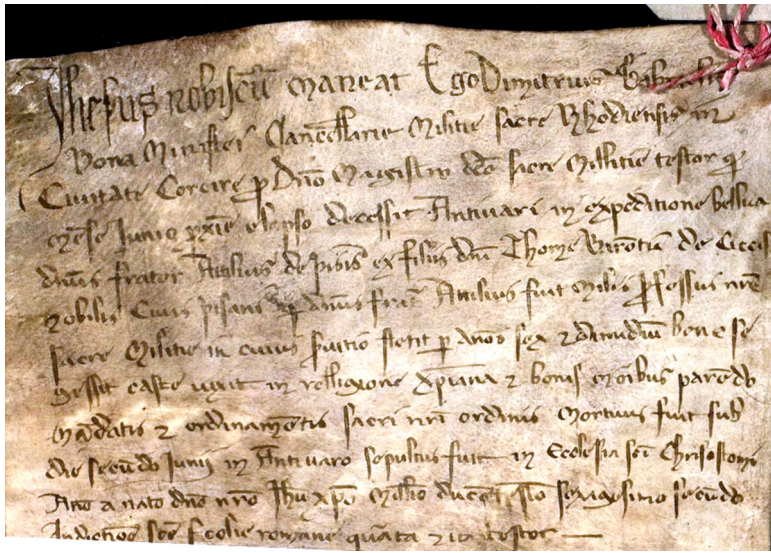 Jhesus nobiscũ maneat Ego Dimitrius Gabrielis
Bona Minister Cancellarie Militie sacre Rhodiensis in
Civitate Corcire p Dno Magistro dco sacre Militie testor q
mense Junio pxie elapso decessit Antivari in expeditione bellica
dnus frater Attilius de ex filius dni Thome de
nobilis Civis pisani dnus frat Attilius fuit Miles pfessus nre
sacre Militie in cuius stetit p anos sex z dimidiũ bene se
gessit caste vixit in relligione xpiana z bonis moribus parendo
mãdatis z ordinamẽtis sacri nri ordinis Mortuus fuit sub
die secũdo Junij in Antivaro sepultus fuit in Ecclesia sci Chrisostomi
Ano a nato dno nro Jhu xpo Millo ducẽt sexagesimo secũdo
Indictiõe sce Ecclie romane quarta z ita testor —